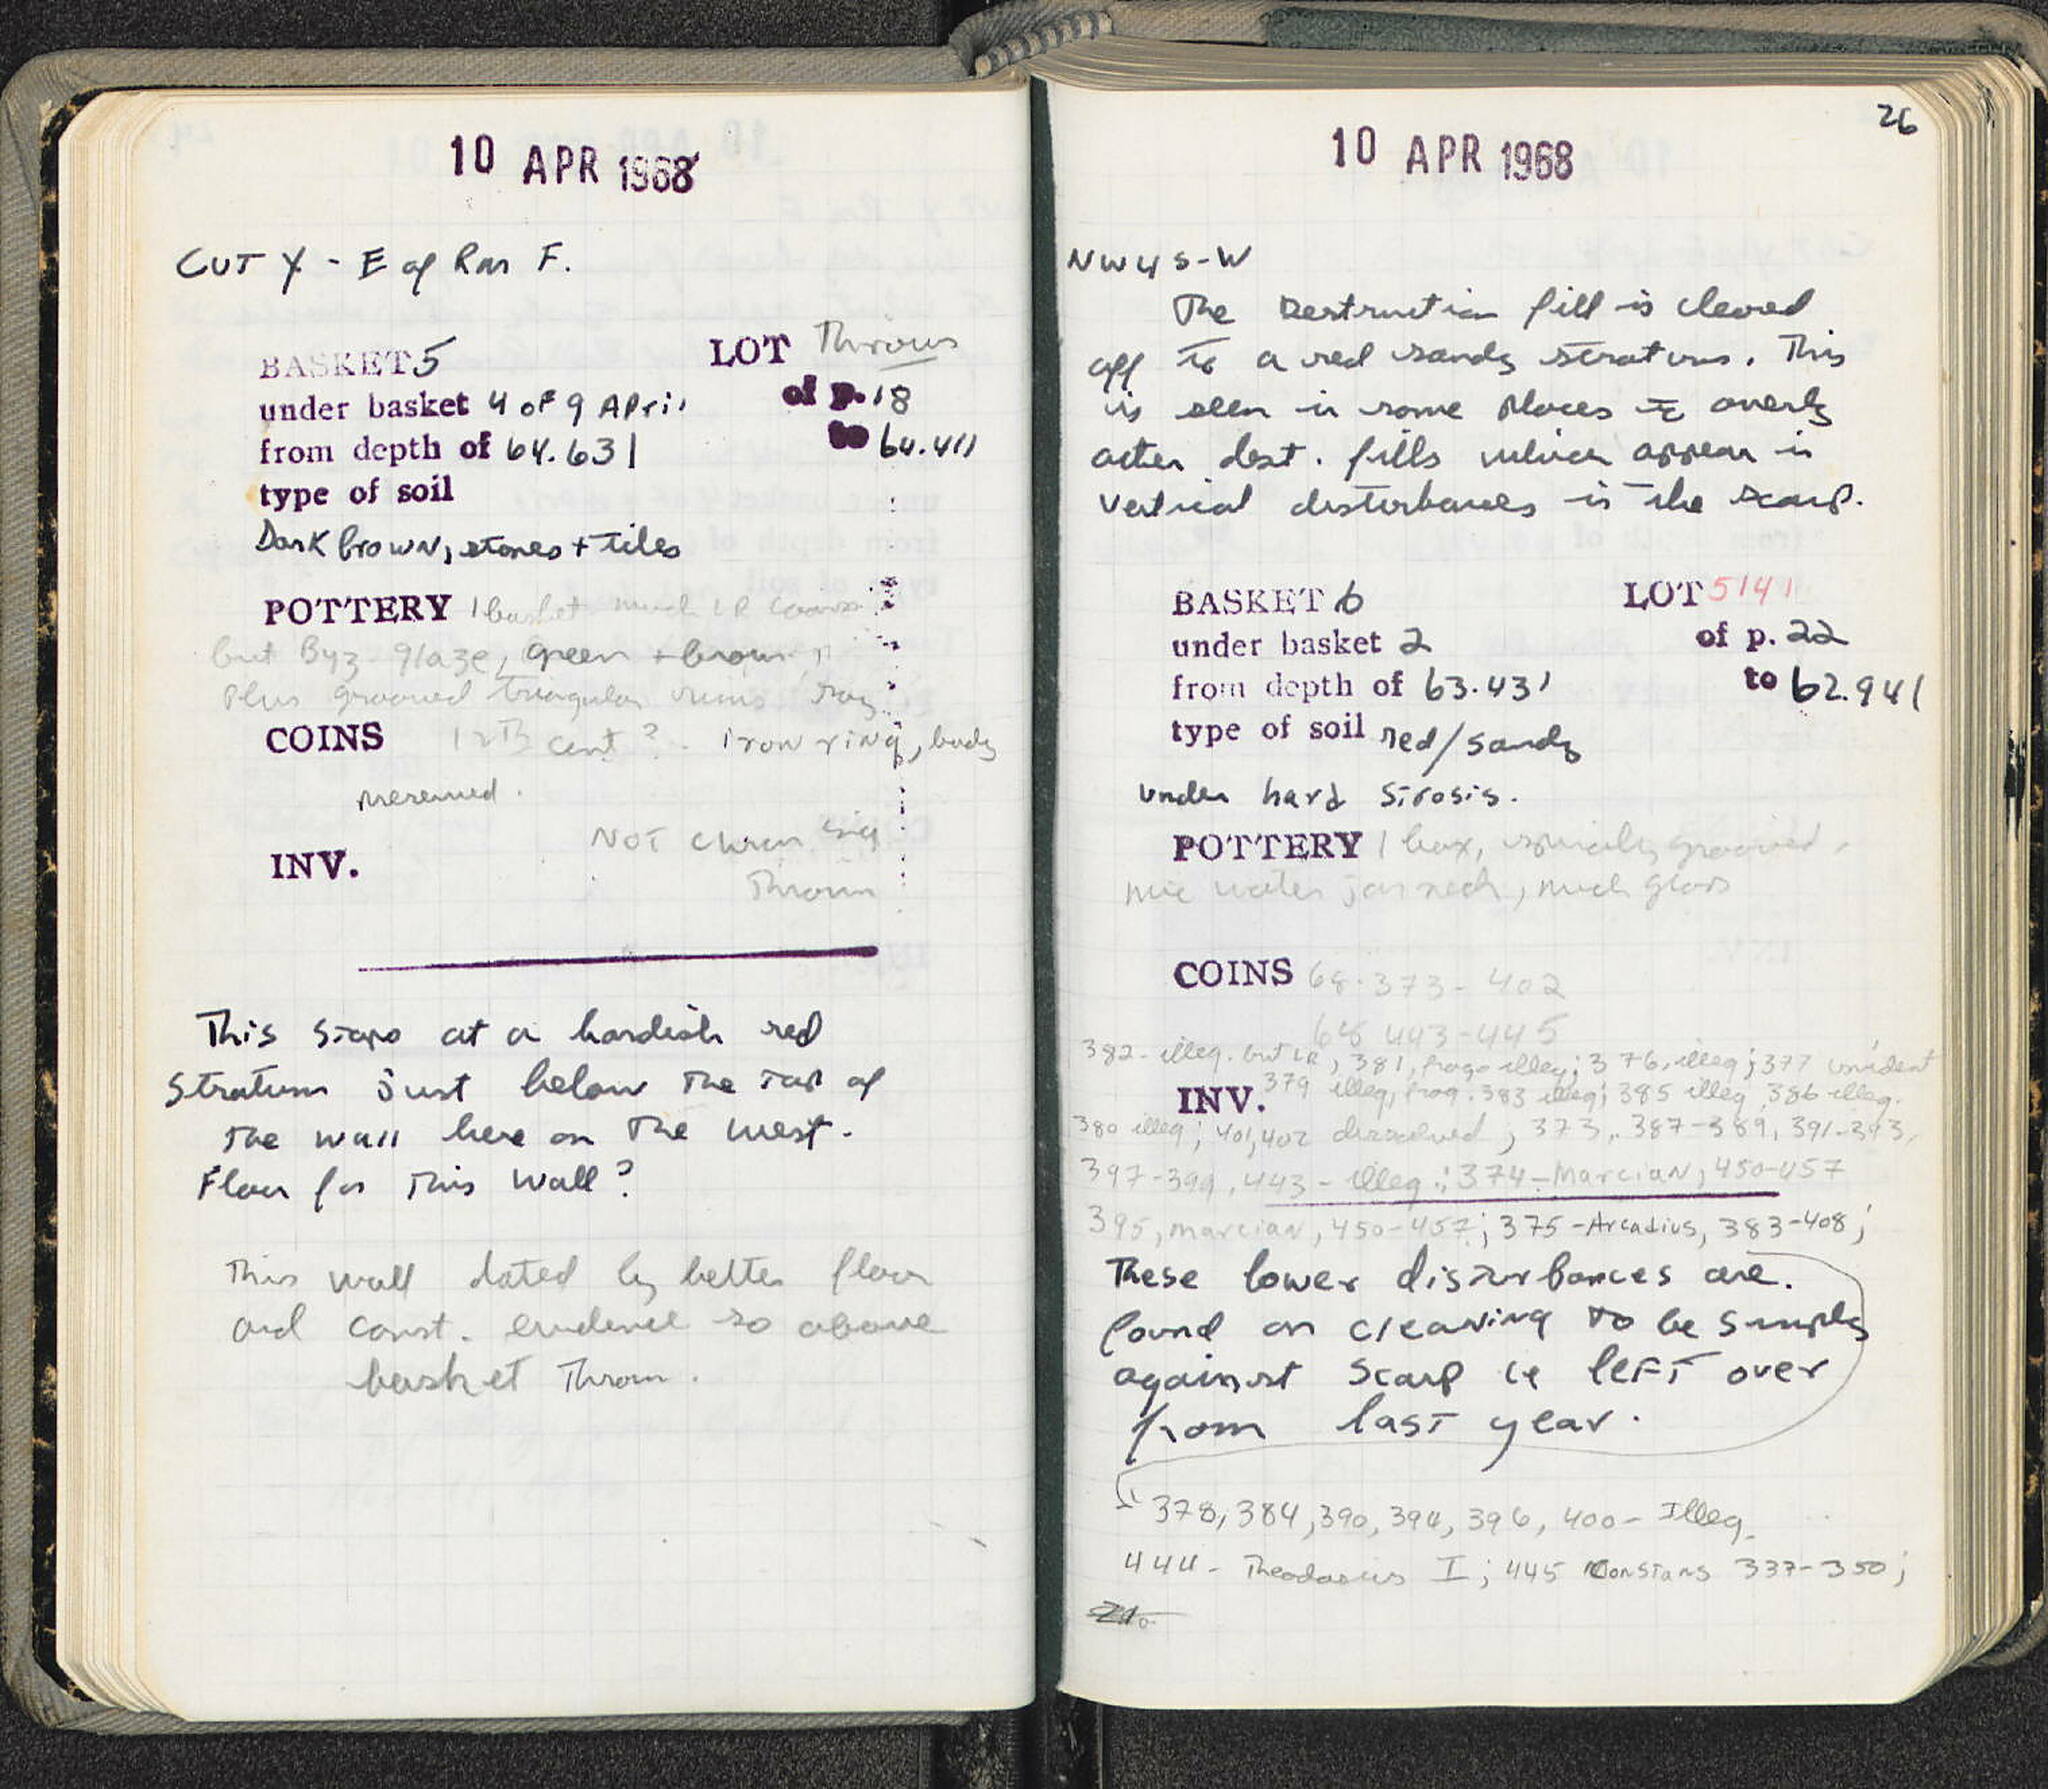 10 APR 1968
CUT Y - E of Rm F.
BASKET 5 LOT Thrown
under basket 4 of 9 April of p. 18
from depth of 64.631 to 64.411
type of soil
Dark brown, stones + tiles
POTTERY 1 basket much LR coarse
but Byz. glaze, green + brown,
Plus grooved triangular rims, say
COINS 12th cent? Iron ring, badly
preserved.
NOT chron sig
INV. Thrown
This stops at a hardish red
stratum just below the top of
the wall here on the west.
Floor for this wall?
This wall dated by better floor
and const. evidence so above
basket Thrown.
26
10 APR 1968
NW 4 S-W
The Destruction fill is cleared
off to a red sandy stratum. This
is seen in some places to overly
other dest. fills which appear in
vertical disturbances in the scarp.
BASKET 6 LOT 5141
under basket 2 of p. 22
from depth of 63.431 to 62.941
type of soil red/sandy
under hard strosis.
POTTERY 1 box, spirally grooved,
nice water jar neck, much glass
COINS 68.373 - 402
68 443-445
382 - illeg. but LR, 381, frags illeg; 376, illeg; 377 unident
INV. 379 illeg, frag. 383 illeg; 385 illeg 386 illeg.
380 illeg; 401, 402 dissolved, 373, 387-389, 391-393,
397-399, 443 - illeg.; 374 - Marcian, 450-457
395, Marcian, 450-457; 375 - Arcadius, 383-408;
These lower disturbances are
found on cleaning to be simply
against scarp ie left over
from last year.
378, 384, 390, 394, 396, 400 - Illeg.
444 - Theodosius I; 445 Constans 337-350;